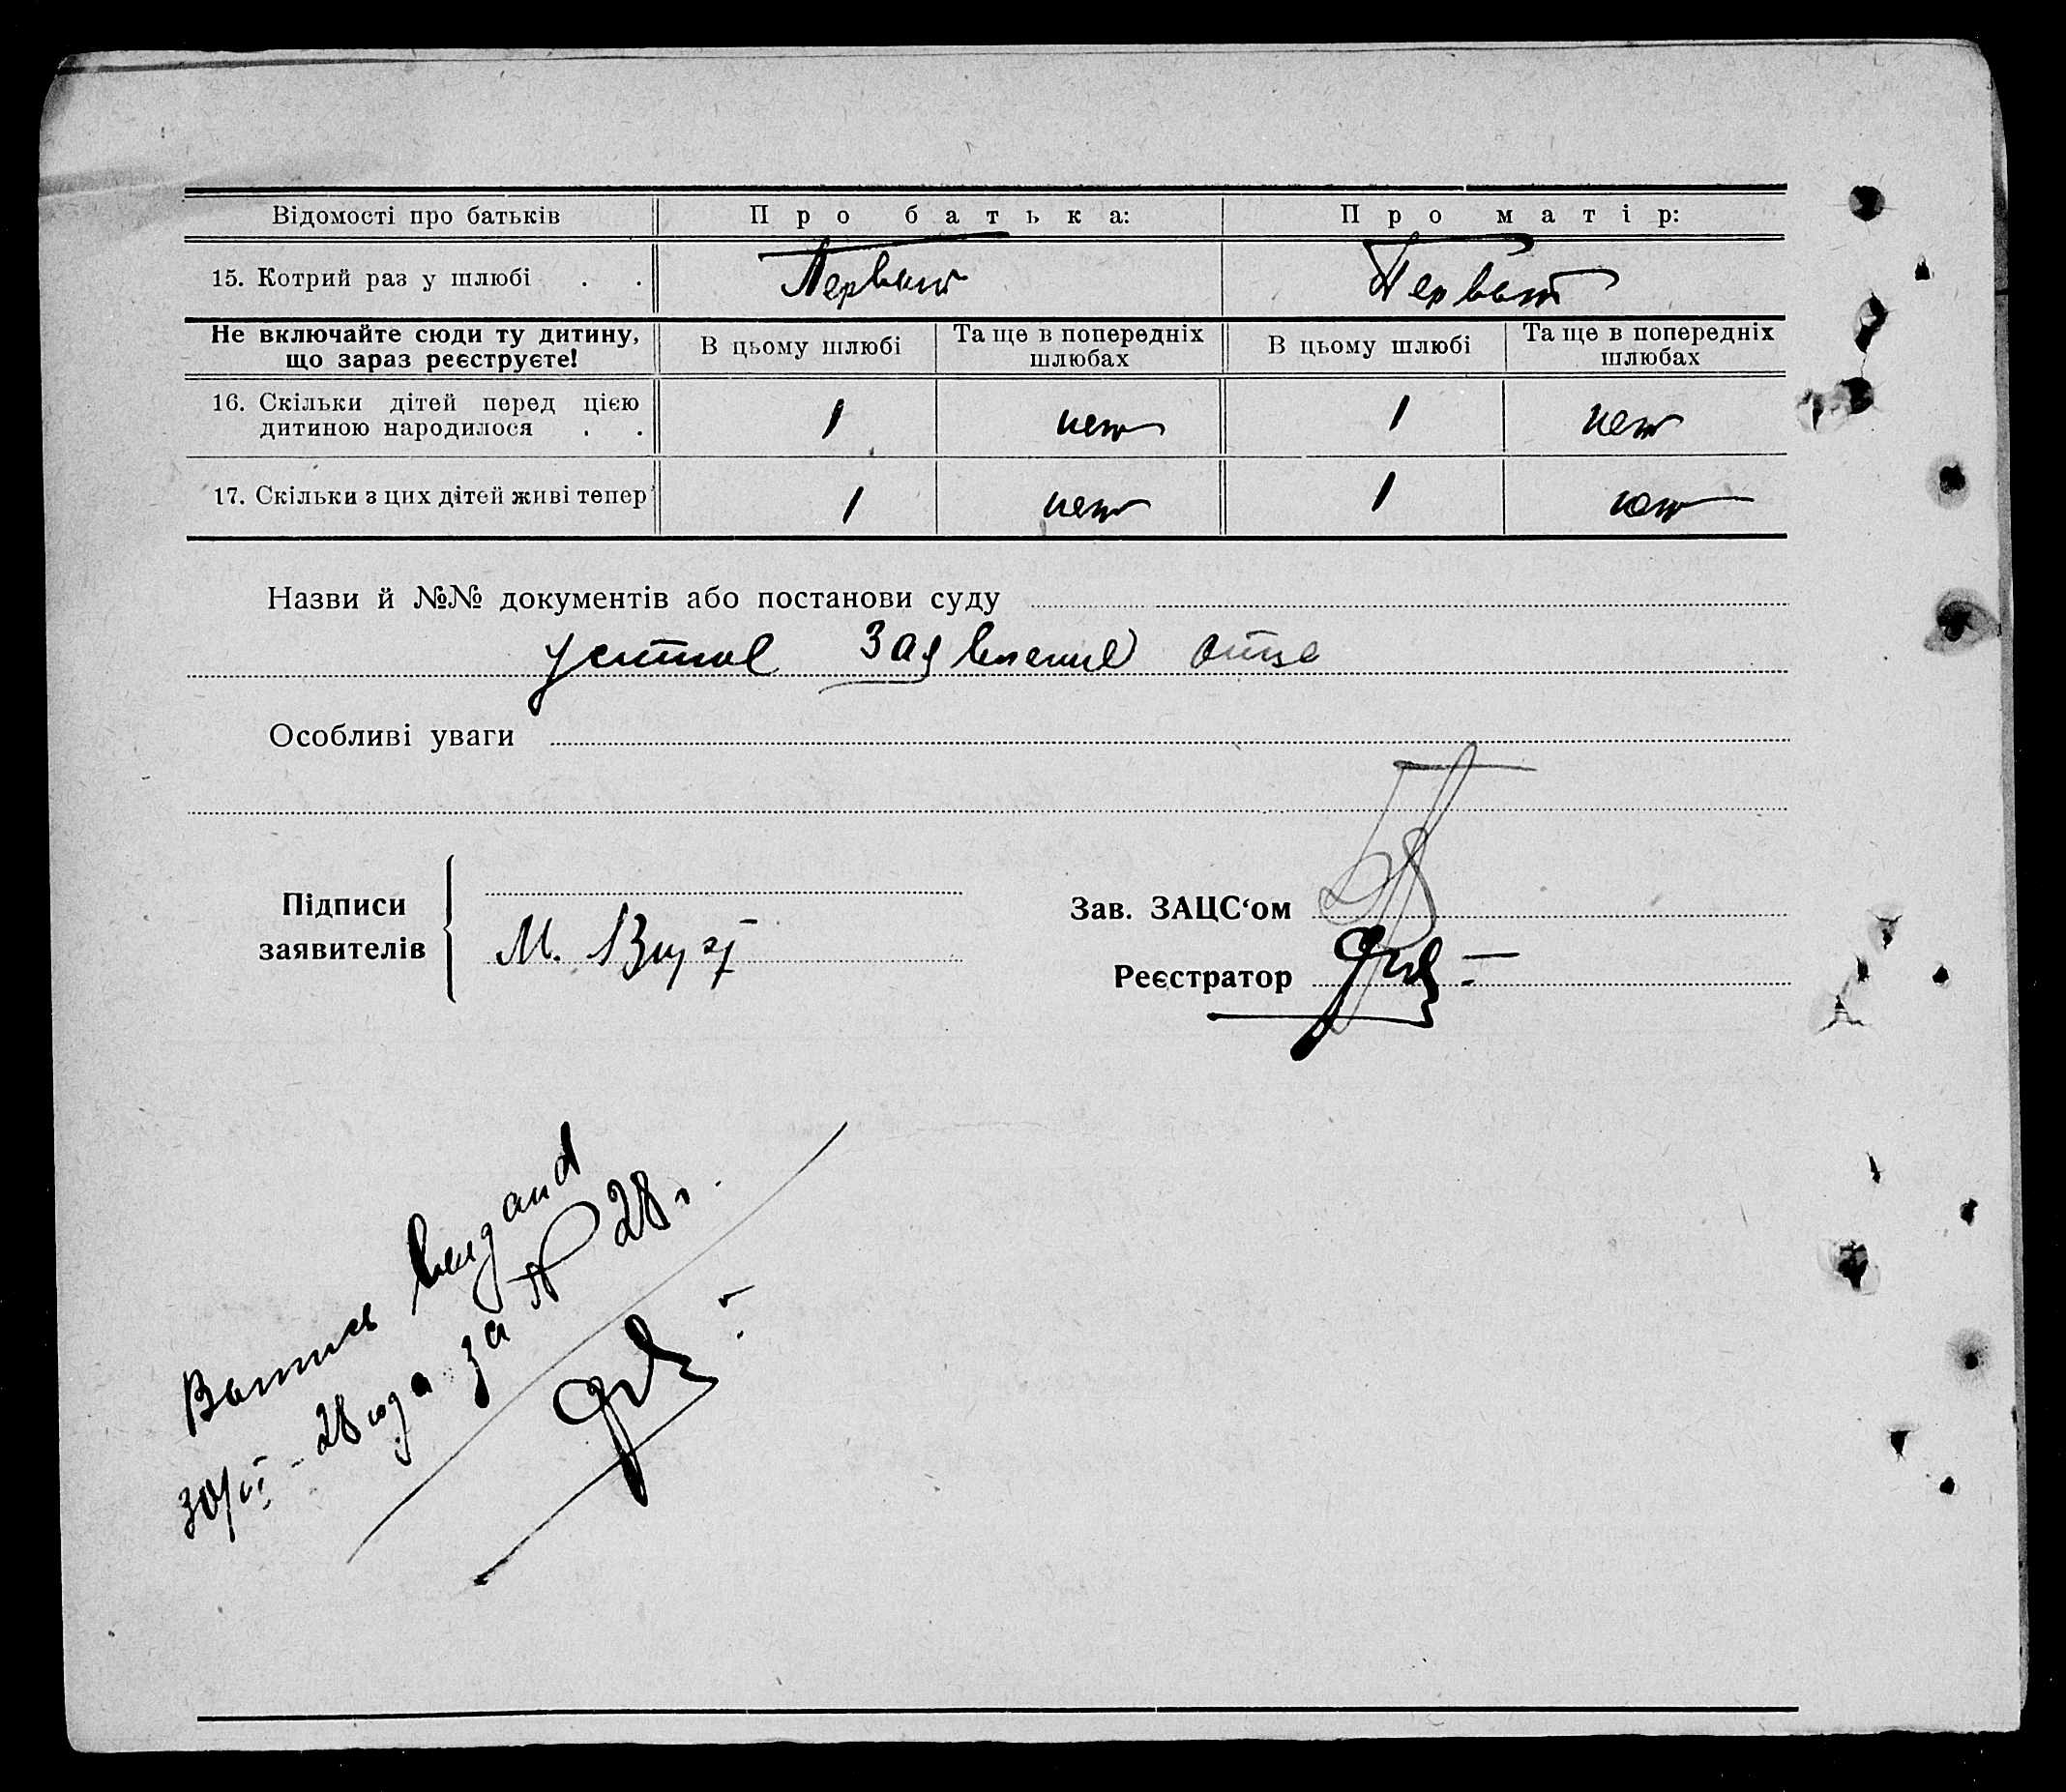 Відомості про батьків Про батька: Про матір:
15. Котрий раз у шлюбі . . Первый Первый
Не включайте сюди ту дитину, що зараз реєструєте! В цьому шлюбі Та ще в попередніх шлюбах В цьому шлюбі Та ще в попередніх шлюбах
16. Скільки дітей перед цією
дитиною народилося . . 1 нет 1 нет
17. Скільки з цих дітей живі тепер 1 нет 1 нет
Назви й №№ документів або постанови суду
устное заявление отца
Особливі уваги
Підписи
заявителів
М.
Зав. ЗАЦС‘ом
Реєстратор
Выпись выдана
30/ - 28 года за № 28